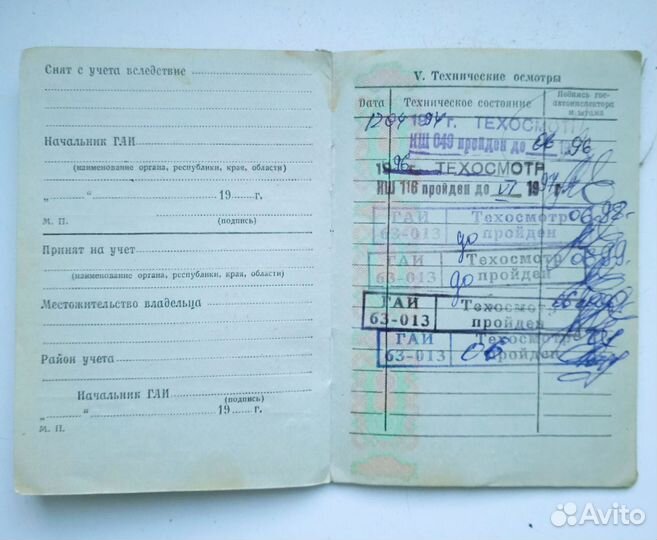 Снят с учета вследствие
Начальник ГАИ
(наименование органа, республики, края, области)
„ “ 19 г.
М. П. (подпись)
Принят на учет
(наименование органа, республики, края, области)
Местожительство владельца
Район учета
Начальник ГАИ
(подпись)
„ “ 19 г.
М. П.
V. Технические осмотры
Дата Техническое состояние Подпись гос-автоинспектора и штамп
199 г. ТЕХОСМОТР
КШ 049 пройден до 96
1996 г. ТЕХОСМОТР
КШ 116 пройден до VI 1997
ГАИ 63-013 Техосмотр пройден до 06.98
ГАИ 63-013 Техосмотр пройден до 06.99
ГАИ 63-013 Техосмотр пройден
ГАИ 63-013 06 Техосмотр пройден
Avito